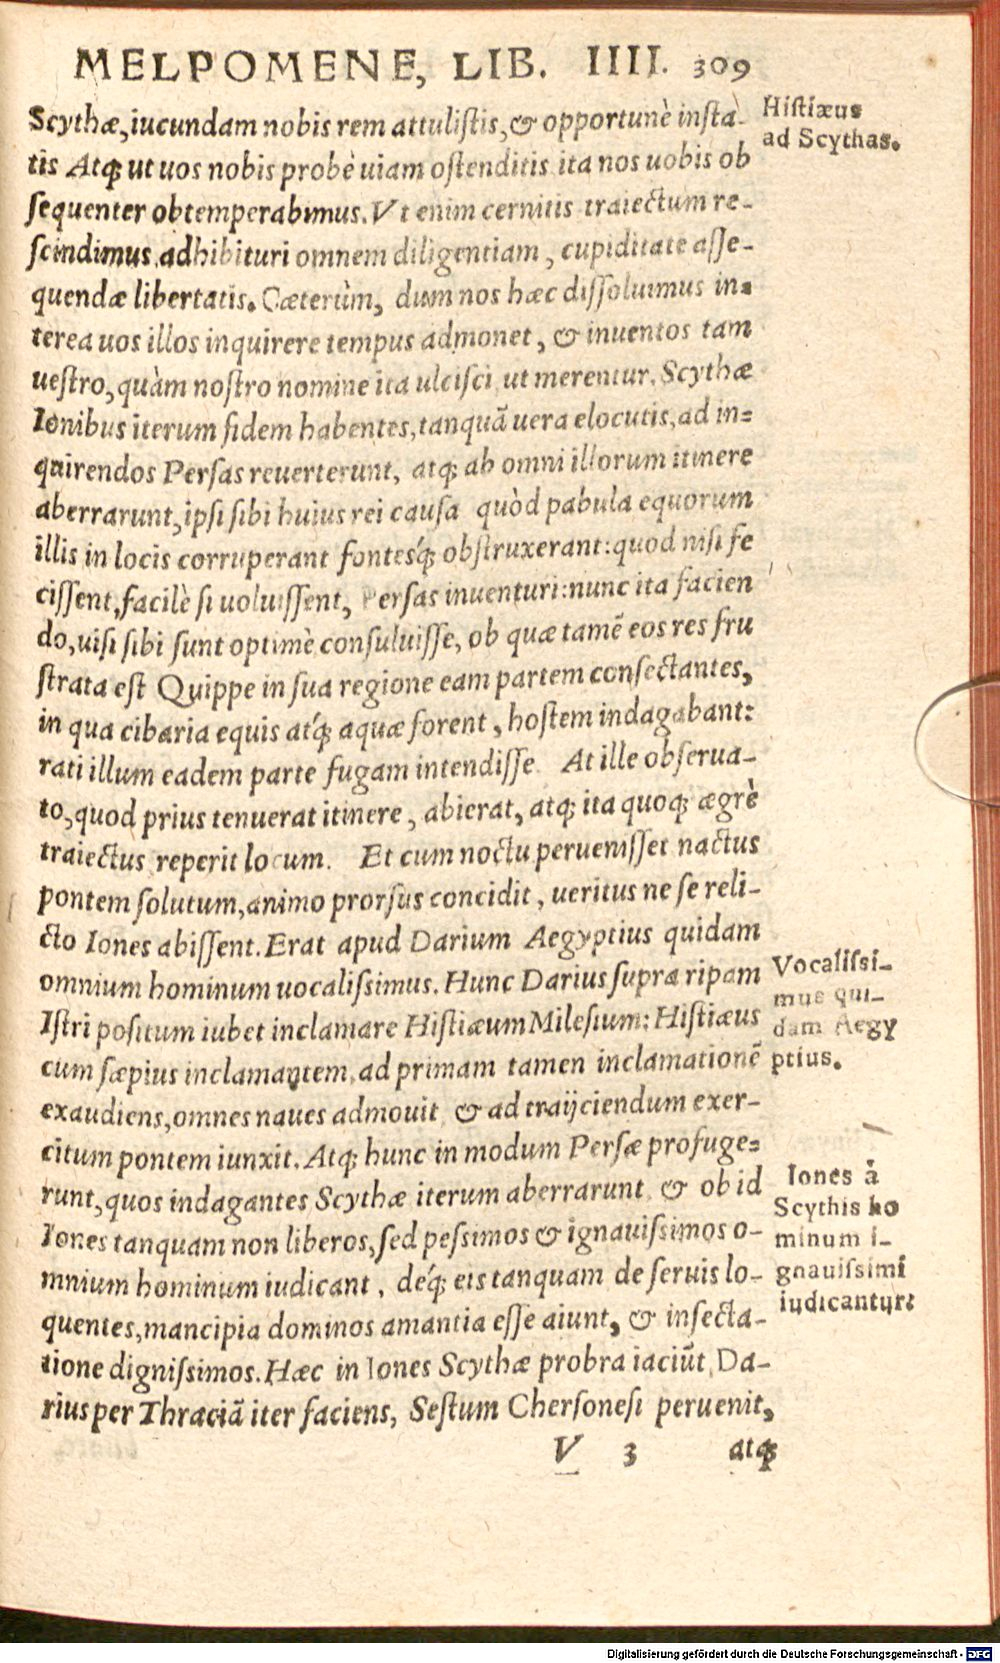 MELPOMENE, LIB. IIII. 309
Scythæ, iucundam nobis rem attuliſtis, & opportunè inſta-
tis Atq; ut uos nobis probè uiam oſtenditis ita nos uobis ob
ſequenter obtemperabimus. Vt enim cernitis traiectum re-
ſcindimus, adhibituri omnem diligentiam, cupiditate aſſe-
quendæ libertatis. Cæterùm, dum nos hæc diſſoluimus in-
terea uos illos inquirere tempus admonet, & inuentos tam
ueſtro, quàm noſtro nomine ita ulciſci ut merentur. Scythæ
Ionibus iterum fidem habentes, tanquã uera elocutis, ad in-
quirendos Perſas reuerterunt, atq; ab omni illorum itinere
aberrarunt, ipſi ſibi huius rei cauſa quòd pabula equorum
illis in locis corruperant fontesq́; obſtruxerant: quod niſi fe
ciſſent, facilè ſi uoluiſſent, Perſas inuenturi: nunc ita facien
do, uiſi ſibi ſunt optimè conſuluiſſe, ob quæ tamẽ eos res fru
ſtrata eſt Quippe in ſua regione eam partem conſectantes,
in qua cibaria equis atq́; aquæ forent, hoſtem indagabant:
rati illum eadem parte fugam intendiſſe. At ille obſerua-
to, quod prius tenuerat itinere, abierat, atq; ita quoq; ægrè
traiectus reperit locum. Et cum noctu perueniſſet nactus
pontem ſolutum, animo prorſus concidit, ueritus ne ſe reli-
cto Iones abiſſent. Erat apud Darium Aegyptius quidam
omnium hominum uocaliſsimus. Hunc Darius ſupra ripam
Iſtri poſitum iubet inclamare Hiſtiæum Mileſium: Hiſtiæus
cum ſæpius inclamantem, ad primam tamen inclamationẽ
exaudiens, omnes naues admouit & ad traijciendum exer-
citum pontem iunxit. Atq; hunc in modum Perſæ profuge-
runt, quos indagantes Scythæ iterum aberrarunt & ob id
Iones tanquam non liberos, ſed peſsimos & ignauiſsimos o-
mnium hominum iudicant, deq́; eis tanquam de ſeruis lo-
quentes, mancipia dominos amantia eſſe aiunt, & inſecta-
tione digniſsimos. Hæc in Iones Scythæ probra iaciũt, Da-
rius per Thraciã iter faciens, Seſtum Cherſoneſi peruenit,
V 3 atq;
Hiſtiæus
ad Scythas.
Vocaliſsi-
mus qui-
dam Aegy
ptius.
Iones à
Scythis ho
minum i-
gnauiſsimi
iudicantur:
Digitalisierung gefördert durch die Deutsche Forschungsgemeinschaft - DFG